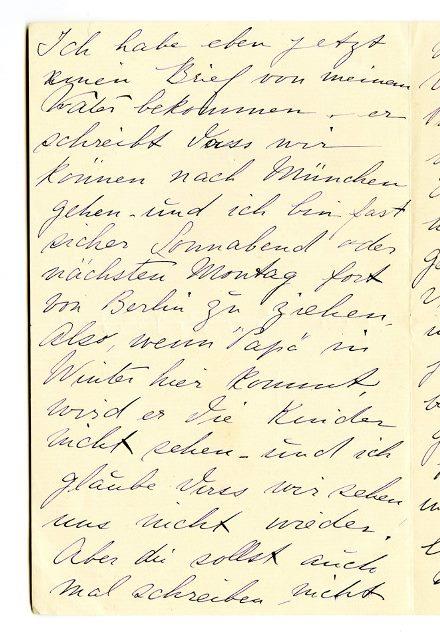 Ich habe eben jetzt
einen Brief von meinem
Vater bekommen - er
schreibt dass wir
können nach München
gehen - und ich bin fast
sicher Sonnabend oder
nächsten Montag fort
von Berlin zu ziehen.
Also, wenn "Papa" im
Winter hier kommt,
wird er die Kinder
nicht sehen - und ich
glaube dass wir sehen
uns nicht wieder.
Aber du sollst auch
mal schreiben nicht